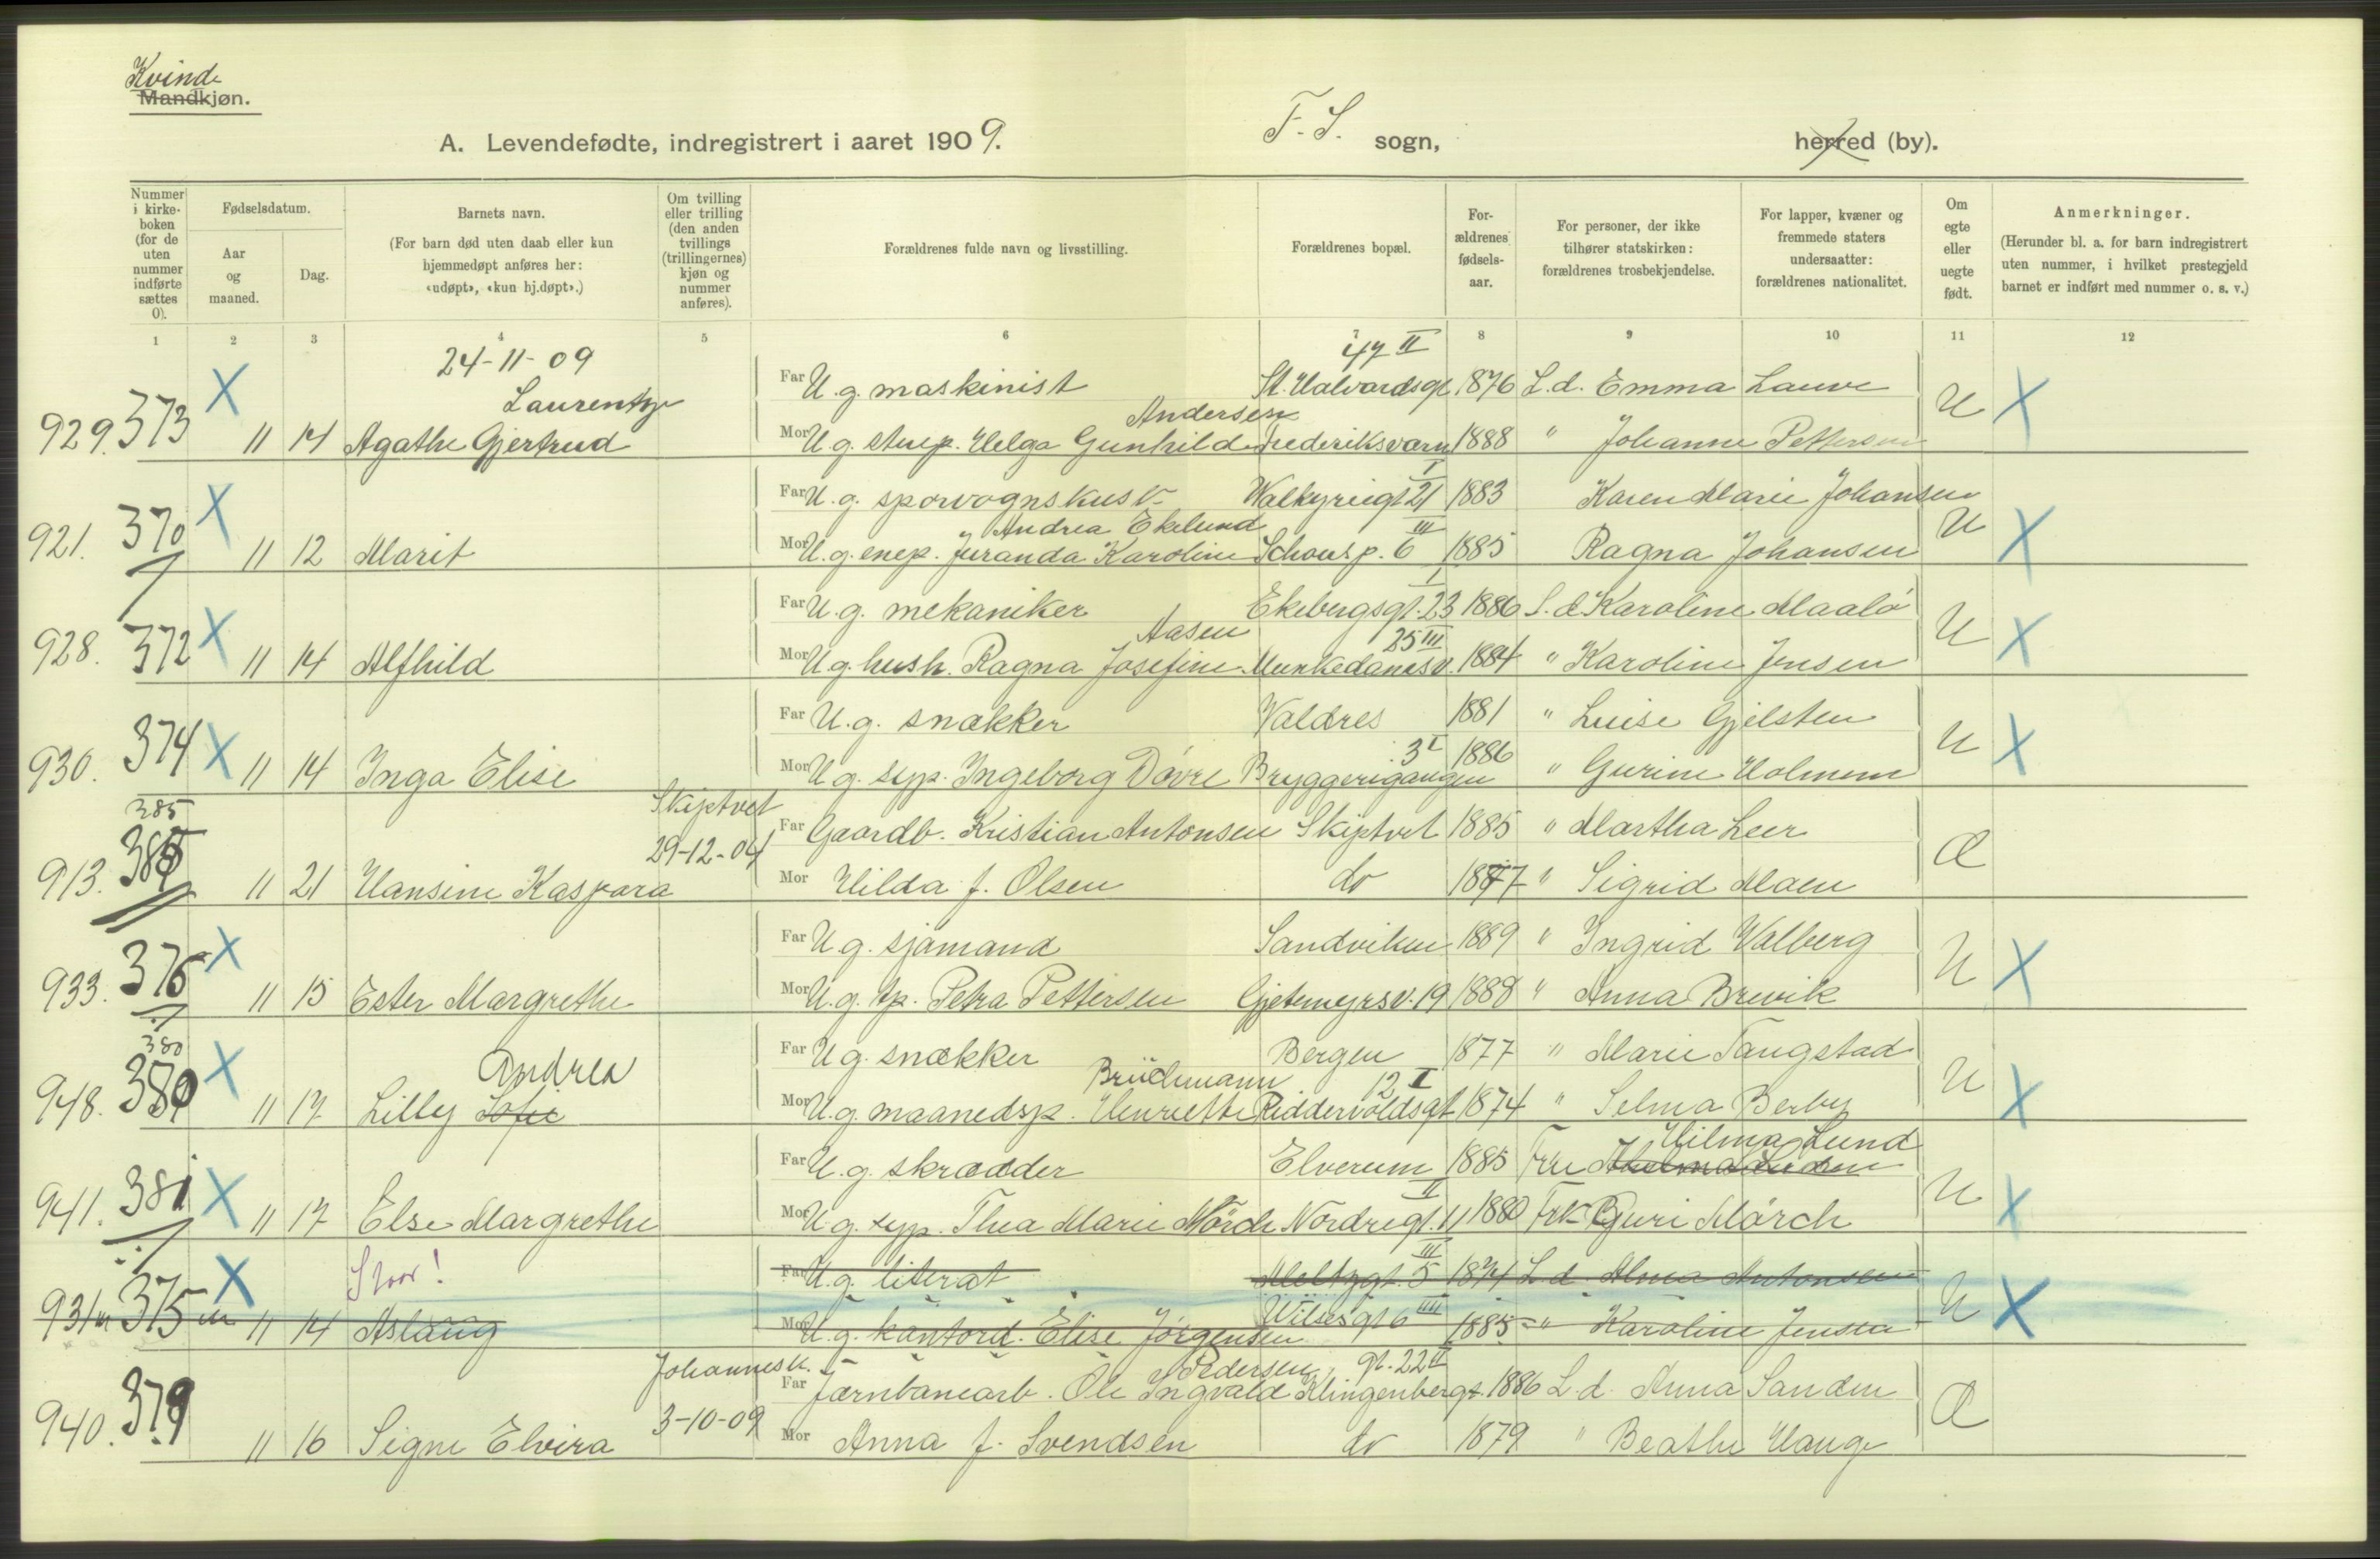 Kvinde
Mandkjøn.
A. Levendefødte, indregistrert i aaret 1909.
F. S. sogn,
herred (by).
Nummer i kirkeboken (for de uten nummer indførte sættes 0).
Fødselsdatum.
Aar og maaned.
Dag.
Barnets navn.
(For barn død uten daab eller kun hjemmedøpt anføres her: «udøpt», «kun hj.døpt».)
Om tvilling eller trilling (den anden tvillings (trillingernes) kjøn og nummer anføres).
Forældrenes fulde navn og livsstilling.
Forældrenes bopæl.
Forældrenes fødselsaar.
For personer, der ikke tilhører statskirken: forældrenes trosbekjendelse.
For lapper, kvæner og fremmede staters undersaatter: forældrenes nationalitet.
Om egte eller uegte født.
Anmerkninger.
(Herunder bl. a. for barn indregistrert uten nummer, i hvilket prestegjeld barnet er indført med nummer o. s. v.)
1 2 3 4 5 6 7 8 9 10 11 12
24-11-09 47 II
X Far U.g. maskinist St. Halvardsgt. 1876 L.d. Emma Lauve U X
Laurentze Andersen
929. 373 11 14 Agathe Gjertrud Mor U.g. Helga Gunhild Frederiksværn 1888 " Johanne Pettersen
X Far U.g. sporvognskusk Walkyriegt 21 I 1883 Karen Marie Johansen U X
Andrea Ekelund III
921. 370 11 12 Marit Mor U.g. Juranda Karoline Schousp. 6 1885 Ragna Johansen
X Far U.g. mekaniker Ekebergsgt. 23 I 1886 L.d. Karoline Maalø U X
Aasen 25 III
928. 372 11 14 Alfhild Mor U.g. hush. Ragna Josefine Munkedamsv. 1884 " Karoline Jensen
Far U.g. snækker Valdres 1881 " Luise Gjelsten U X
3 I
930. 374 X 11 14 Inga Elise Mor U.g. syp. Ingeborg Dovre Bryggerigangen 1886 " Gurine Holmem
385 Skiptvet
Far Gaardb. Kristian Antonsen Skiptvet 1885 " Martha Leer Æ
29-12-04
913. 385 11 21 Hansine Kaspara Mor Hilda f. Olsen do 1887 " Sigrid Moen
X Far U.g. sjømand Sandviken 1889 " Ingrid Valberg U X
933. 376 11 15 Ester Margrethe Mor U.g. tp. Petra Pettersen Gjetemyrsv. 19 1888 " Anna Brevik
380
X Far U.g. snækker Bergen 1877 " Marie Taugstad U X
Andrea Brüchmann 12 I
948. 380 11 17 Lilly Sofie Mor U.g. maanedsp. Henriette Riddervoldsgt 1874 " Selma Berby
Hilma Lund
Far U.g. skrædder Elverum 1885 Fru U X
II
941. 381 X 11 17 Else Margrethe Mor U.g. syp. Thea Marie Mörch Nordregt. 11 1880 Frk Guri Mörch
X III
Far U.g. literat Meltzgt. 5 1874 L.d. Alma Antonsen U X
Wilsesgt 6 IIII
931 375 11 14 Aslaug Mor U.g. kantord. Elise Jørgensen 1885 " Karoline Jensen
Johannesk. Pedersen gt. 22 II
Far Jernbanearb. Ole Ingvald Klingenbergs 1886 L.d. Anna Sanden Æ
3-10-09
940. 379 11 16 Signe Elvira Mor Anna f. Svendsen do 1879 " Beathe Hauge